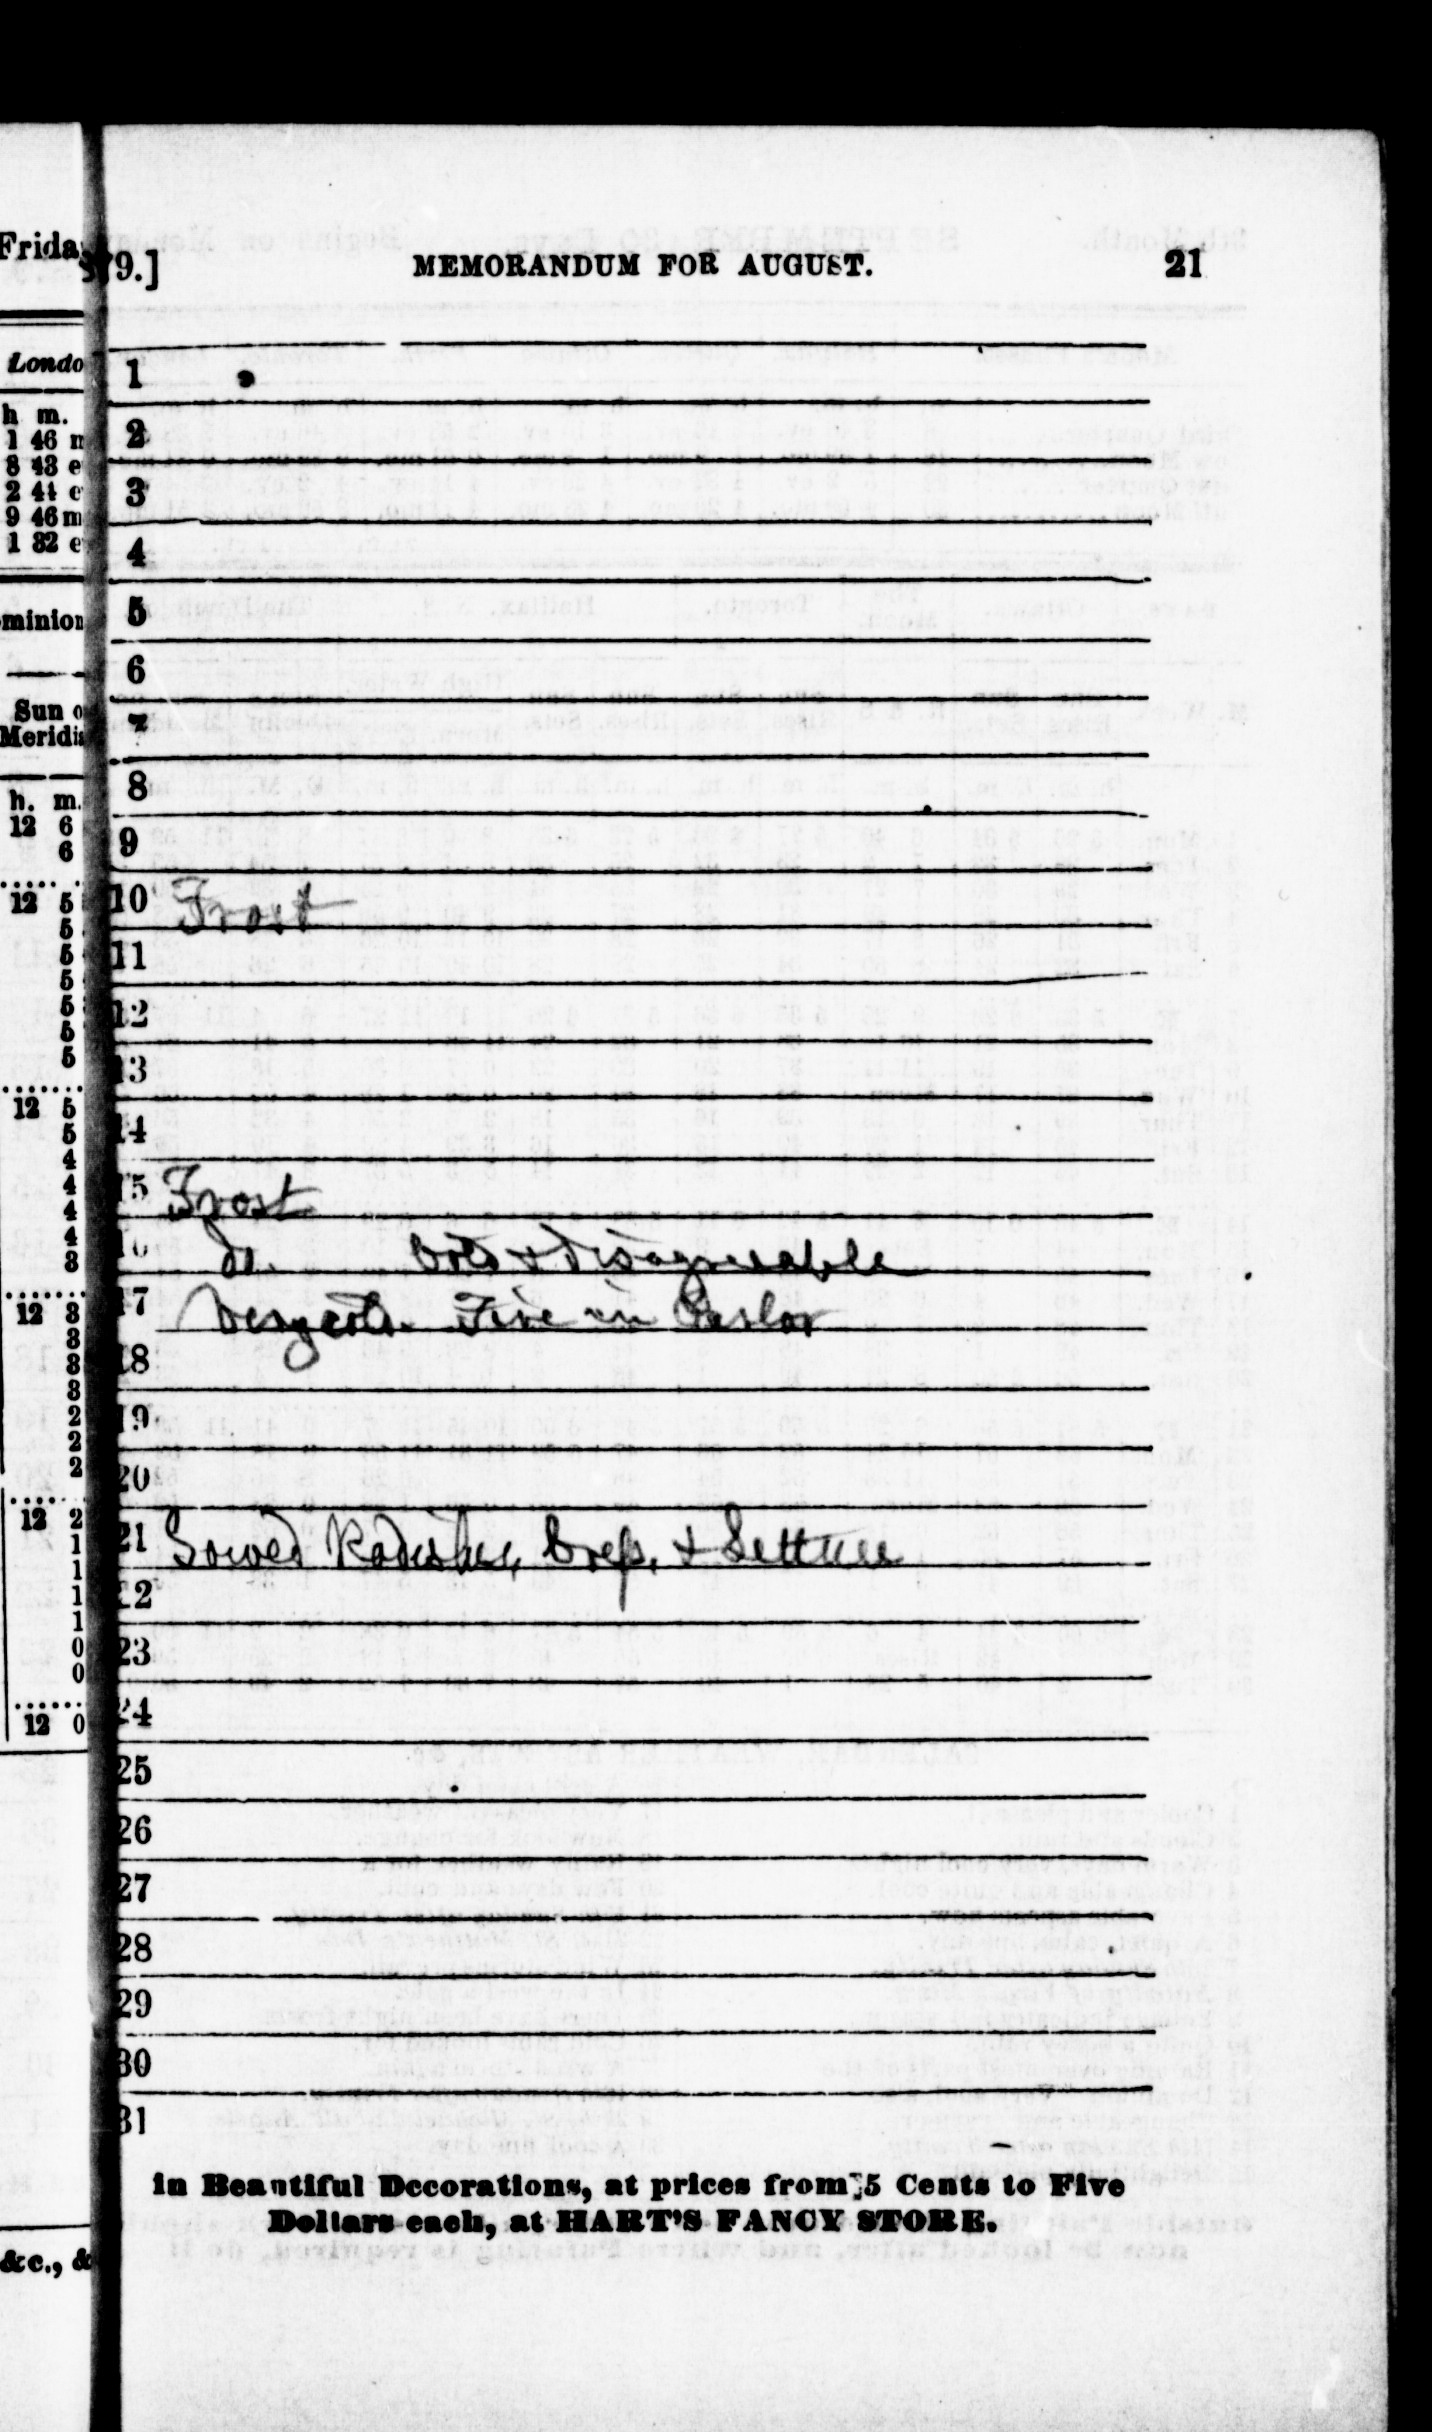 Frida
879.] MEMORANDUM FOR AUGUST. 21
Londo
h m.
1 46 m
8 43 e
2 44 e
9 46 m
1 32 e
minion
Sun o
Meridi
h. m.
12 6
6
12 5
5
5
5
5
5
5
12 5
5
4
4
4
4
3
12 3
3
3
3
3
2
2
2
12 2
1
1
1
1
0
0
12 0
&c., &
1
2
3
4
5
6
7
8
9
10 Frost
11
12
13
14
15 Frost
16 Do. Cold & Disagreeable
17 Very cold. Fire in Parlor
18
19
20
21 Sowed Radishes, Cress, & Lettuce
22
23
24
25
26
27
28
29
30
31
in Beautiful Decorations, at prices from 5 Cents to Five
Dollars each, at HART'S FANCY STORE.